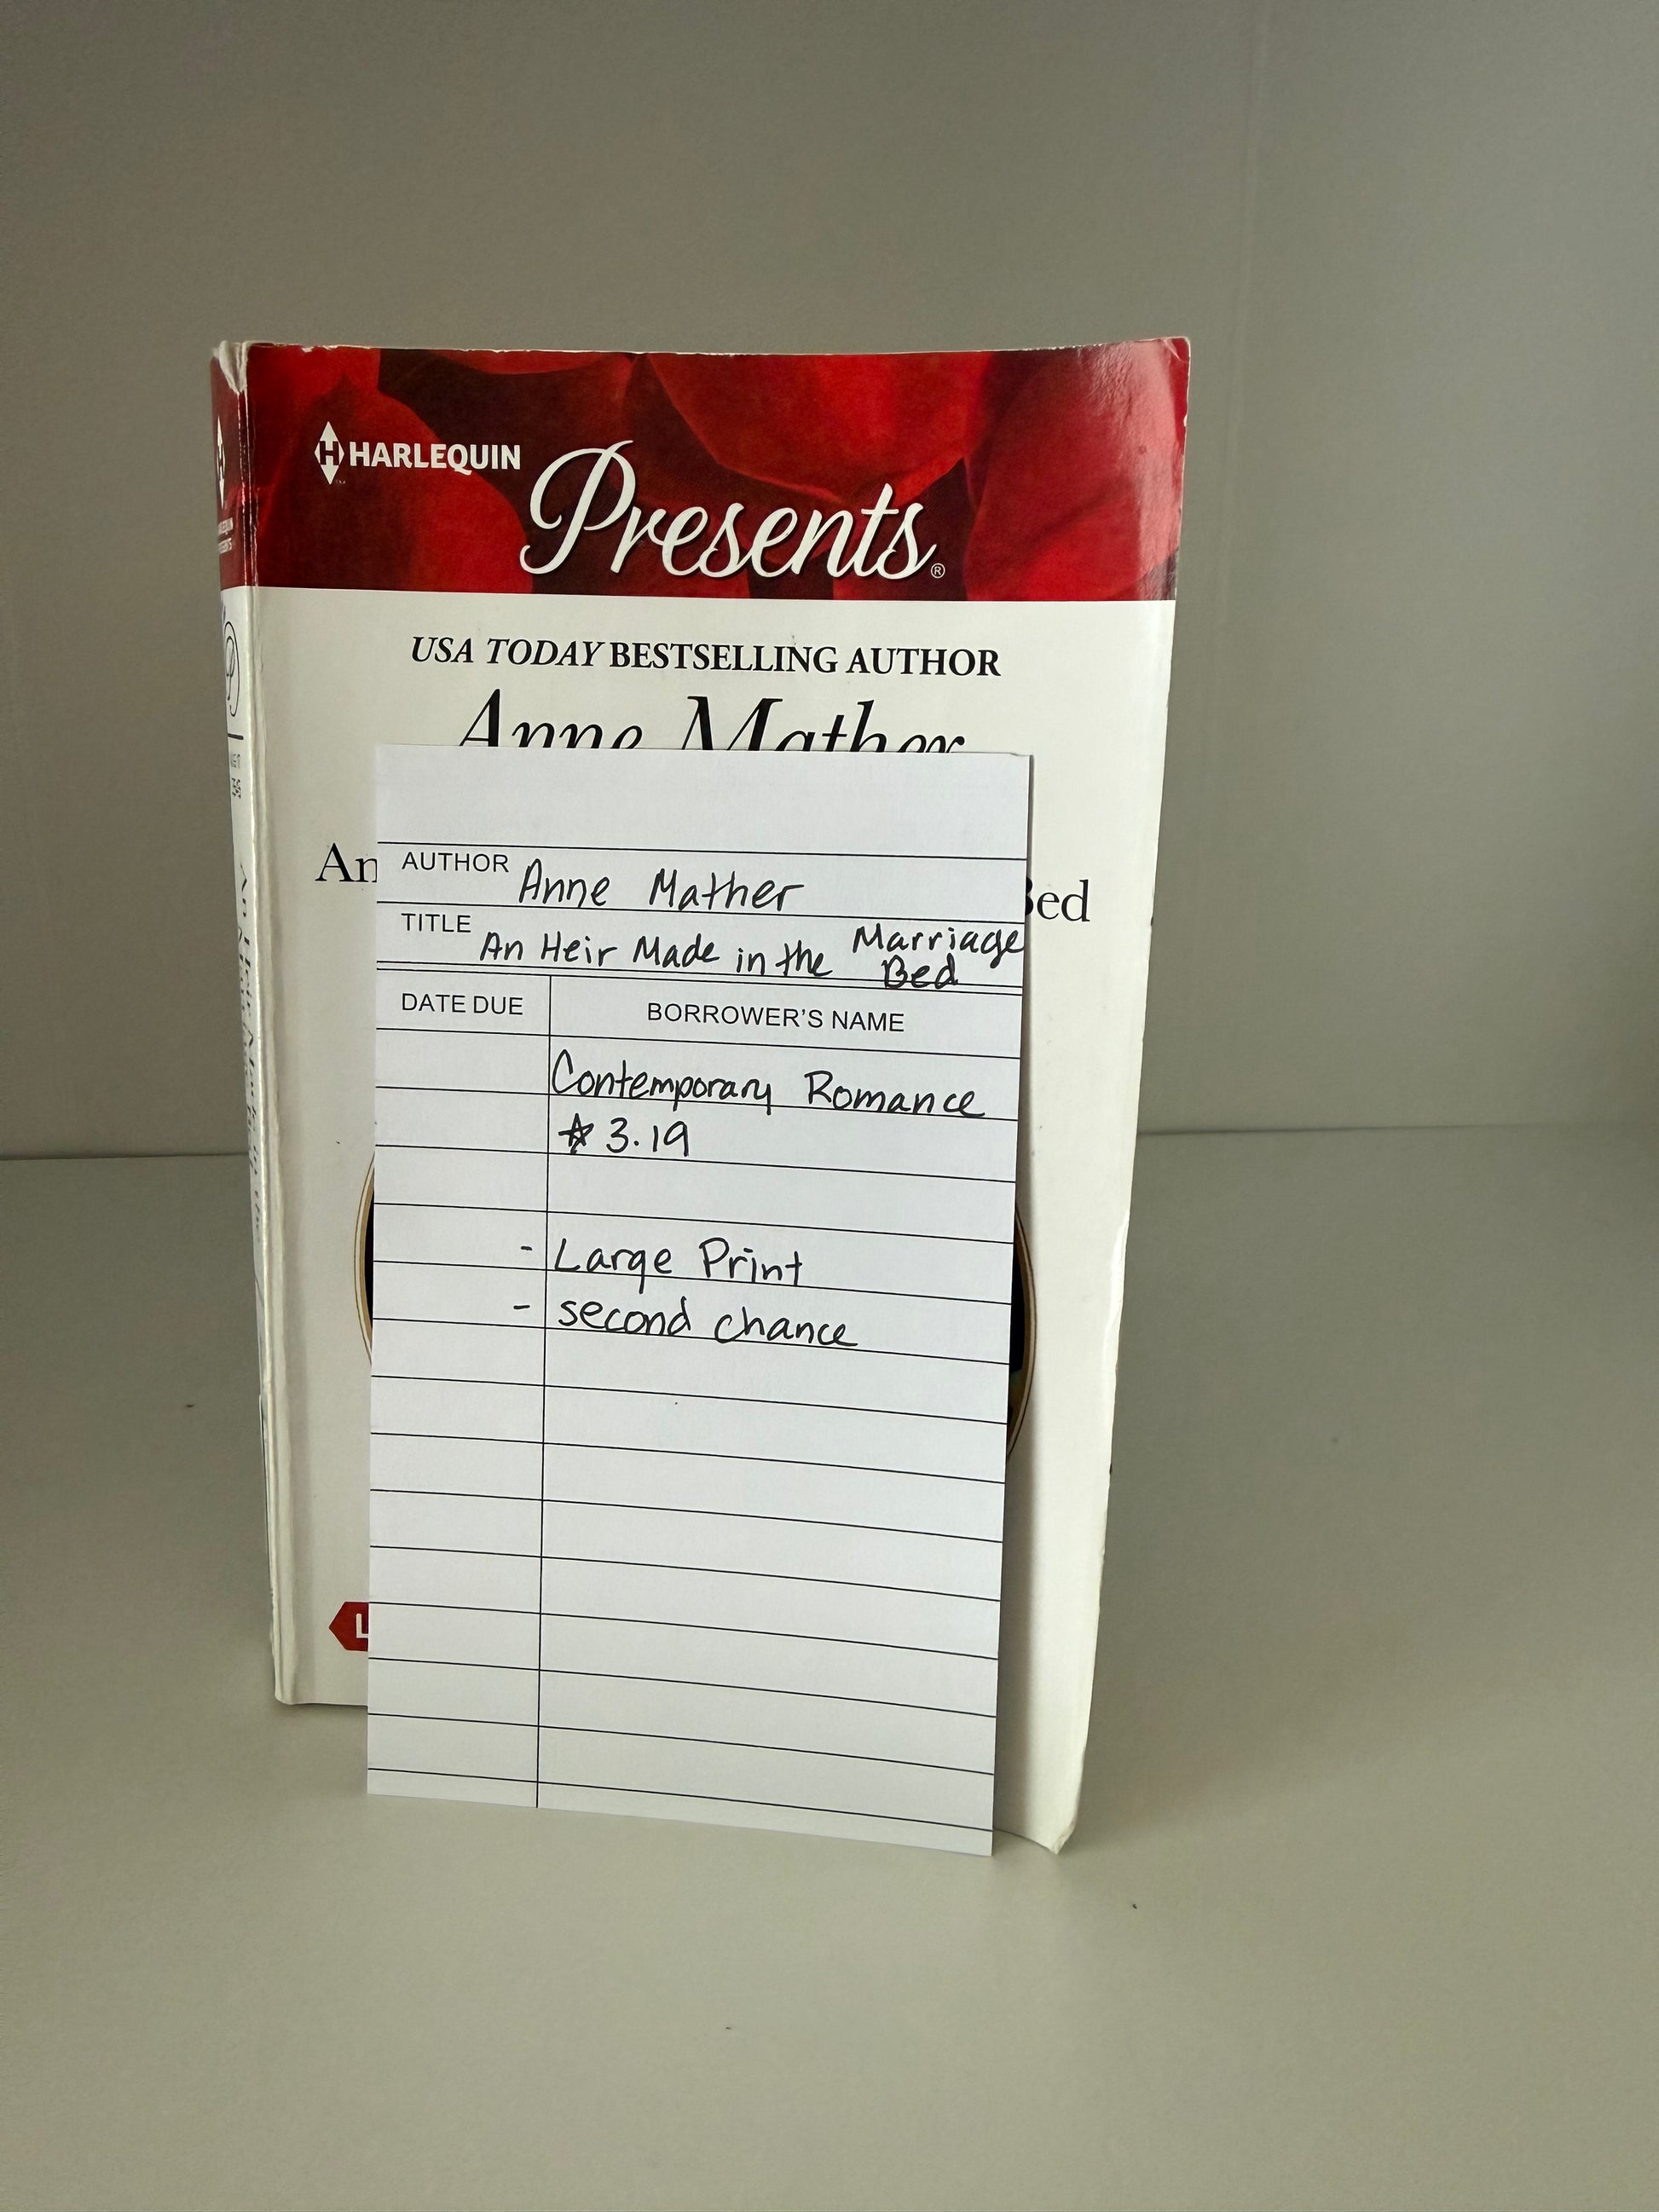 HARLEQUIN
Presents®
USA TODAY BESTSELLING AUTHOR
Anne Mather
An
Bed
AUTHOR Anne Mather
TITLE An Heir Made in the Marriage
Bed
DATE DUE BORROWER'S NAME
Contemporary Romance
☆ 3.19
- Large Print
- second chance
L